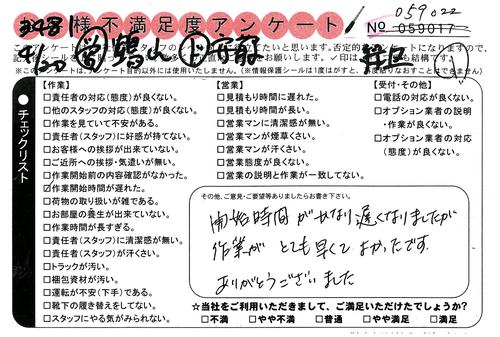 お客様不満足度アンケート
No 059017
059022
チェックリスト
【作業】
□責任者の対応(態度)が良くない。
□他のスタッフの対応(態度)が良くない。
□作業を見ていて不安がある。
□責任者(スタッフ)に好感が持てない。
□お客様への挨拶が出来ていない。
□ご近所への挨拶・気遣いが無い。
□作業開始前の内容確認がなかった。
☑作業開始時間が遅れた。
□荷物の取り扱いが雑である。
□お部屋の養生が出来ていない。
□作業時間が長すぎる。
□責任者(スタッフ)に清潔感が無い。
□責任者(スタッフ)が汗くさい。
□トラックが汚い。
□梱包資材が汚い。
□運転が不安(下手)である。
□靴下の履き替えをしてない。
□スタッフにやる気がみられない。
【営業】
□見積もり時間に遅れた。
□見積もり時間が長い。
□営業マンに清潔感が無い。
□営業マンが煙草くさい。
□営業マンが汗くさい。
□営業態度が良くない。
□営業の説明と作業が一致してない。
【受付・その他】
□電話の対応が良くない。
□オプション業者の説明
・作業が良くない。
□オプション業者の対応
(態度)が良くない。
その他、ご意見・ご要望等ありましたらお書き下さい。
開始時間がかなり遅くなりましたが
作業がとても早くてよかったです。
ありがとうございました
☆当社をご利用いただきまして、ご満足いただけたでしょうか?
□不満 □やや不満 □普通 □やや満足 □満足